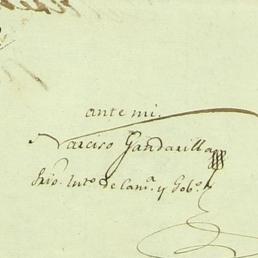 ante mi.
Narciso Gandarilla
Srio. Int.º de Cam.ª y Gob.º